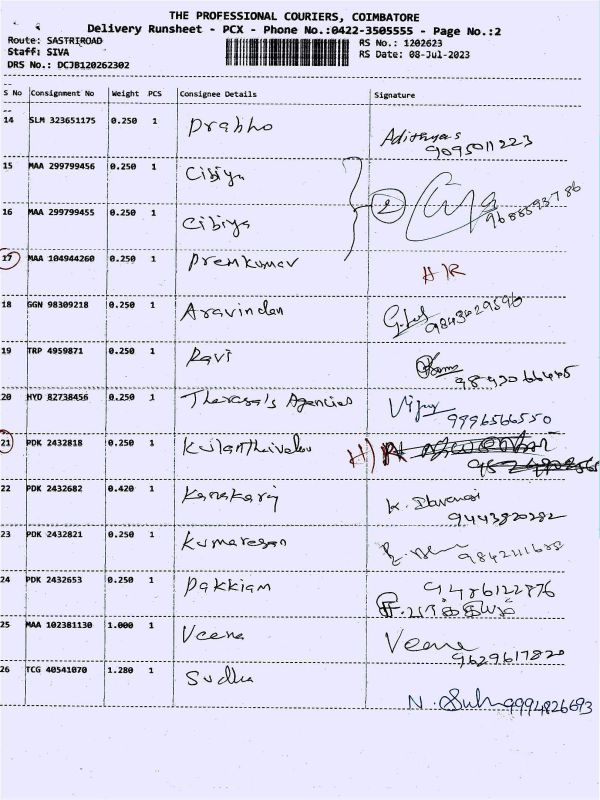 THE PROFESSIONAL COURIERS, COIMBATORE
Delivery Runsheet - PCX - Phone No.:0422-3505555 - Page No.:2
Route: SASTRIROAD
RS No.: 1202623
Staff: SIVA
RS Date: 08-Jul-2023
DRS No.: DCJB120262302
S No Consignment No Weight PCS Consignee Details Signature
14 SLM 323651175 0.250 1 Prabho Adithyas
9095011223
15 MAA 299799456 0.250 1 Cibiya
2 9688593786
16 MAA 299799455 0.250 1 Cibiya
17 MAA 104944260 0.250 1 Premkumar H/R
18 GGN 98309218 0.250 1 Aravindan 9843429596
19 TRP 4959871 0.250 1 Ravi
9843066445
20 HYD 82738456 0.250 1 Theresa's Agencies Vijay
9996566550
21 PDK 2432818 0.250 1 Kulanthaivelu H/R
22 PDK 2432682 0.420 1 Kanakaraj
9443820282
23 PDK 2432821 0.250 1 Kumaresan
24 PDK 2432653 0.250 1 Pakkiam 9486122876
25 MAA 102381130 1.000 1 Veena Veena
9629617820
26 TCG 40541070 1.280 1 Sudha
9994826693